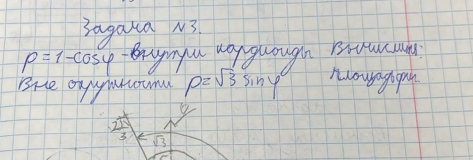 Задача №3.
ρ = 1 - cosφ - внутри кардиоиды Вычислить:
Вне окружности ρ = √3 sinφ площадь фиг.
2π/3
√3